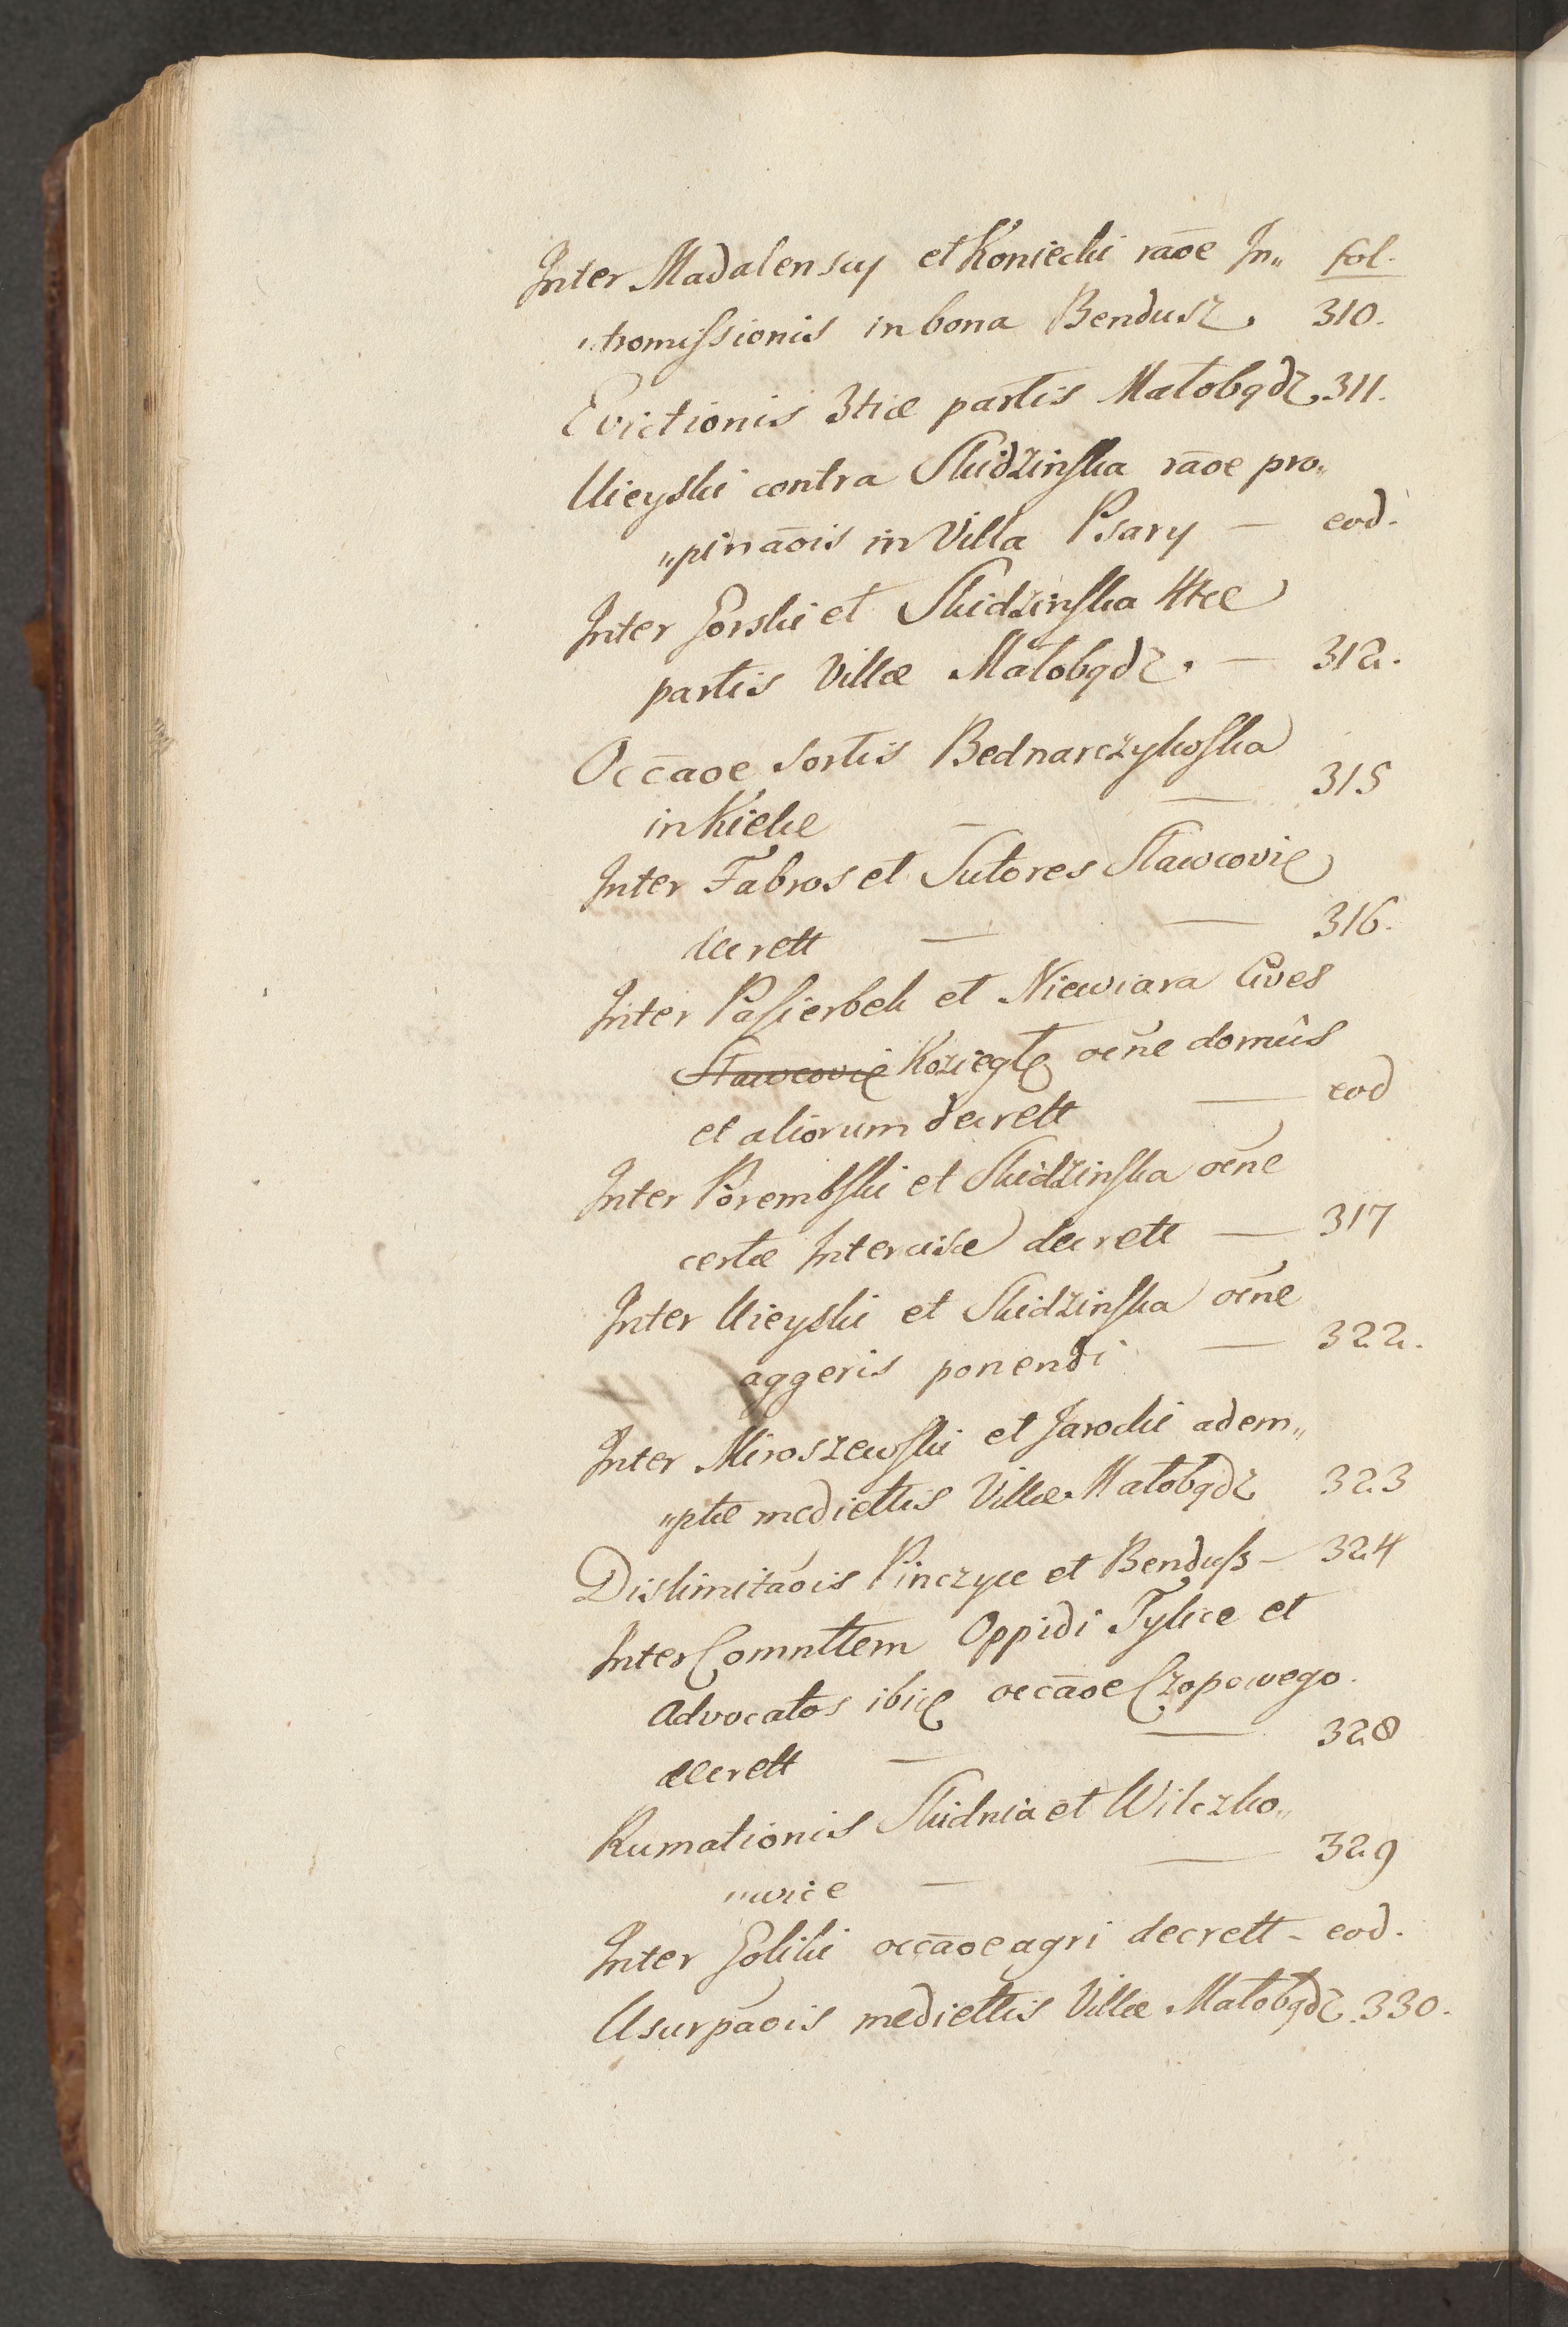 Inter Madalenscy et Koniecki raōe In„ fol.
„tromissionis in bona Bendusz. 310.
Evictionis 3tiæ partis Małobądz. 311.
Uieyski contra Skidzinska raōe pro„
„pinaōis in Villa Psary — eod.
Inter Gorski et Skidzinska 4tæ
partis Villæ Małobądz. — 312.
Occāoe sortis Bednarczykoska
in Kielce — — 315
Inter Fabros et Sutores Slawcovię
decrett — — 316.
Inter Pasierbek et Niewiara Cives
Slawcovię Koziegłę ocñe domûs
et aliorum decrett — eod
Inter Porembski et Skidzinska ocñe
certæ Intercisæ decrett — 317
Inter Uieyski et Skidzinska ocñe
aggeris ponendi — 322.
Inter Miroszewski et Jarocki adem„
„ptæ mediettis Villæ Małobądz 323
Dislimitaōis Pinczyce et Bendusz — 324
Inter Comnttem Oppidi Tylice et
Advocatos ibię occāoe Czopowego
decrett — — 328
Rumationis Skidnia et Wilczko„
„wice — — 329
Inter Golicki occāoe agri decrett — eod.
Usurpaōis mediettis Villæ Małobądz. 330.